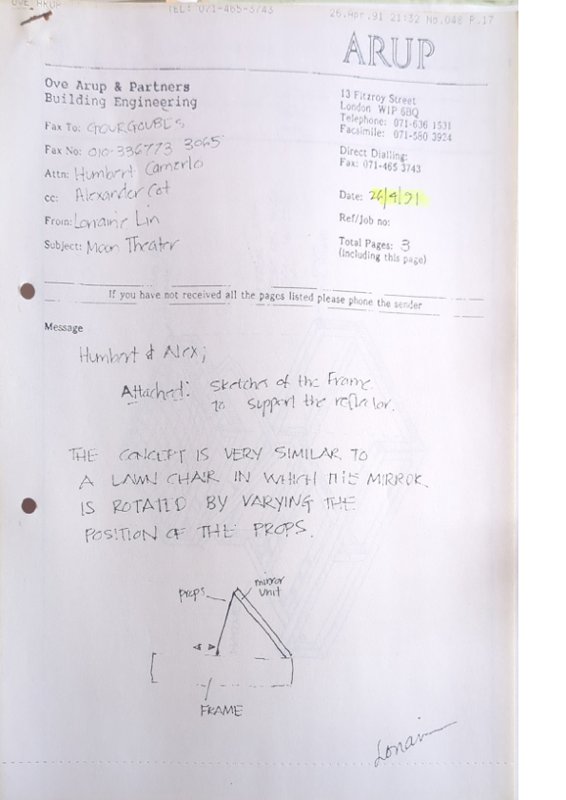 OVE ARUP TEL: 071-465-3743 26.Apr.91 21:32 No.048 P.17
ARUP
Ove Arup & Partners
Building Engineering
13 Fitzroy Street
London W1P 6BQ
Telephone: 071-636 1531
Facsimile: 071-580 3924
Direct Dialling:
Fax: 071-465 3743
Fax To: GOURGOUBES
Fax No: 010-336773 3065
Attn: Humbert Camerlo
cc: Alexander Cot
From: Lorraine Lin
Subject: Moon Theater
Date: 26/4/91
Ref/Job no:
Total Pages: 3
(including this page)
If you have not received all the pages listed please phone the sender
Message
Humbert & Alex;
Attached: sketches of the Frame
to support the reflector.
THE CONCEPT IS VERY SIMILAR TO
A LAWN CHAIR IN WHICH THE MIRROR
IS ROTATED BY VARYING THE
POSITION OF THE PROPS.
props
mirror
unit
FRAME
Lorraine